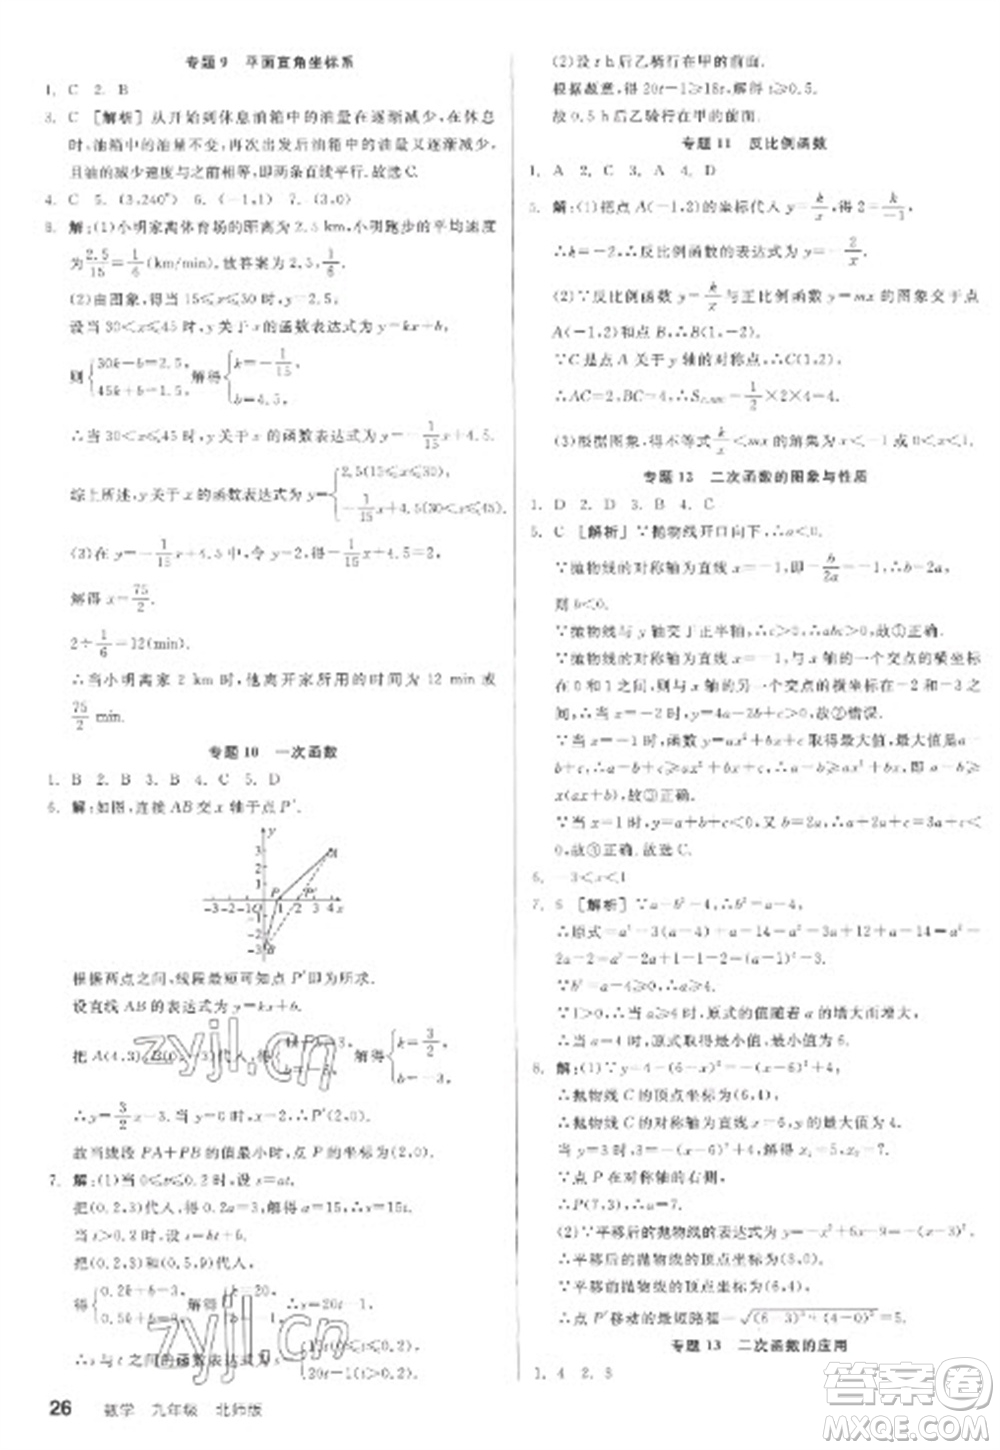 专题9 平面直角坐标系
1. C 2. B
3. C [解析]从开始到休息油箱中的油量在逐渐减少,休息
时,油箱中的油量不变,再次出发油箱中的油量在逐渐减少,
且油的减少速度与之前的一样,因此
4. C 5. (3,240°) 6. (-1,1) 7. (3,0)
8. 解:(1)小明家离体育场的距离为2.5 km,小明跑步的平均速度
为2.5/15=1/6(km/min).故答案为2.5,1/6.
(2)由图象,得15≤x≤30时,y=2.5,
设当30<x≤45时,y关于x的函数表达式为y=kx+b,
则{30k+b=2.5, 45k+b=1.5, 解得{k=-1/15, b=4.5,
∴当30<x≤45时,y关于x的函数表达式为y=-1/15x+4.5.
综上所述,y关于x的函数表达式为y={2.5(15≤x≤30), -1/15x+4.5(30<x≤45).
(3)在y=-1/15x+4.5中,令y=2,得-1/15x+4.5=2,
解得x=75/2.
2÷1/6=12(min).
∴当小明离家2 km时,他离开家所用的时间为12 min或
75/2 min.
专题10 一次函数
1. B 2. B 3. B 4. C 5. D
6. 解:如图,连接AB交x轴于点P′.
根据两点之间,线段最短可知点P′即为所求.
设直线AB的表达式为y=kx+b.
把A(4,3),B(0,-3)代入,得 解得{k=3/2, b=-3,
∴y=3/2x-3.当y=0时,x=2,∴P′(2,0),
故当线段PA+PB的值最小时,点P的坐标为(2,0).
7. 解:(1)当0≤t≤0.2时,设s=at.
把(0.2,3)代入,得0.2a=3,解得a=15,∴s=15t.
当t>0.2时,设s=kt+b.
把(0.2,3)和(0.5,9)代入,
得{0.2k+b=3, 0.5k+b=9, 解得{k=20, b=-1, ∴s=20t-1.
∴s与t之间的函数表达式为s=
(2)设t h后乙骑行在甲的前面.
根据题意,得20t-1>18t,∴t>0.5.
故0.5 h后乙骑行在甲的前面.
专题11 反比例函数
1. A 2. C 3. A 4. D
5. 解:(1)把点A(-1,2)的坐标代入y=k/x,得2=k/-1,
∴k=-2,∴反比例函数的表达式为y=-2/x.
(2)∵反比例函数y=k/x与正比例函数y=mx的图象交于点
A(-1,2)和点B,∴B(1,-2).
∵C是点A关于y轴的对称点,∴C(1,2),
∴AC=2,BC=4,∴S△ABC=1/2×2×4=4.
(3)根据图象,得不等式k/x<mx的解集为x<-1或0<x<1.
专题12 二次函数的图象与性质
1. D 2. D 3. B 4. C
5. C [解析]∵抛物线开口向下,∴a<0.
∵抛物线的对称轴为直线x=-1,即-b/2a=-1,∴b=2a,
则b<0.
∵抛物线与y轴交于正半轴,∴c>0,∴abc>0,故①正确.
∵抛物线的对称轴为直线x=-1,与x轴的一个交点的横坐标
在0和1之间,则与x轴的另一个交点的横坐标在-2和-3之
间,∴当x=-2时,y=4a-2b+c>0,故②错误.
6. -3<x<1
7. 6 [解析]∵a-b²=4,∴b²=a-4,
∴原式=a²-3(a-4)+a-14=a²-3a+12+a-14
=a²-2a-2=a²-2a+1-1-2=(a-1)²-3.
∵b²=a-4≥0,∴a≥4.
∵1>0,∴当a≥4时,原式的值随着a的增大而增大,
∴当a=4时,原式取最小值,最小值为6.
8. 解:(1)∵y=4-(6-x)²=-(x-6)²+4,
∴抛物线C的顶点坐标为(6,4),
∴抛物线C的对称轴为直线x=6,y的最大值为4.
当y=3时,3=-(x-6)²+4,解得x₁=5,x₂=7.
∵点P在对称轴的右侧,
∴P(7,3).
(2)∵平移后的抛物线的表达式为y=-x²+6x-9=-(x-3)²,
∴平移后的抛物线的顶点坐标为(3,0).
∵平移前抛物线的顶点坐标为(6,4),
∴点P′移动的最短路程=√(6-3)²+(4-0)²=5.
专题13 二次函数的应用
1. 4 2. 8
26 数学 九年级 北师版
zyjl.cn
zyjl.cn
答案圈
MXQE.COM